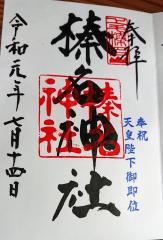 奉拝
奉祝
天皇陛下御即位
榛名神社
榛名
神社
令和元年七月十四日